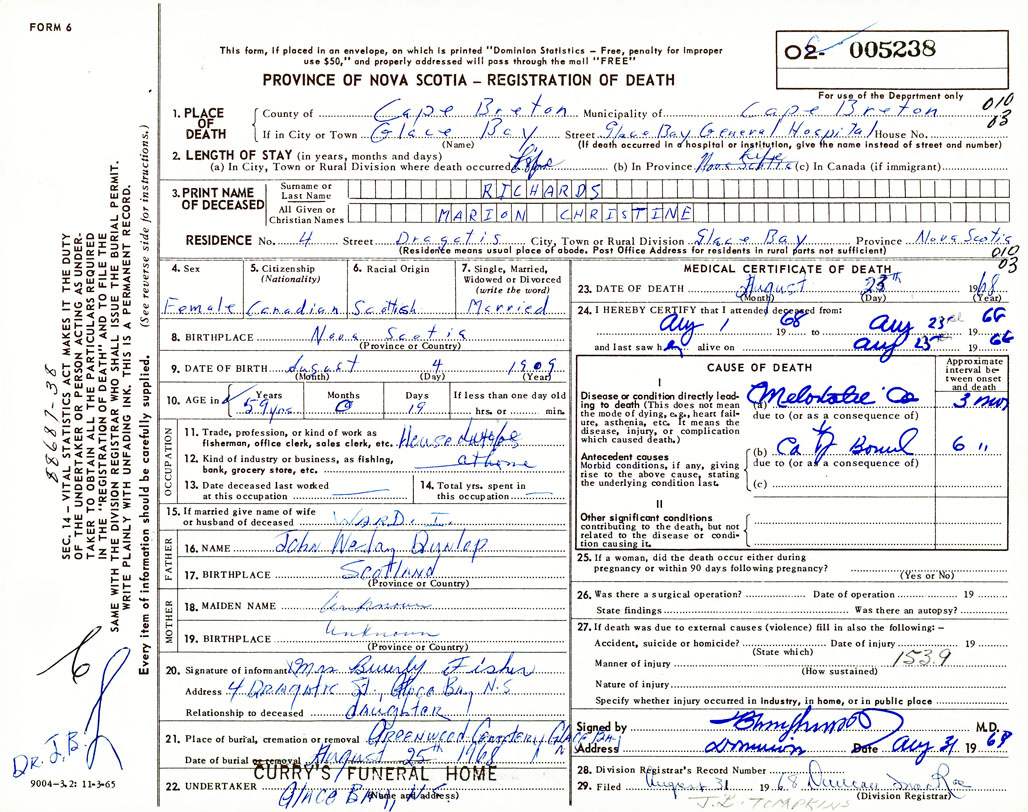 FORM 6
This form, if placed in an envelope, on which is printed "Dominion Statistics – Free, penalty for improper
use $50," and properly addressed will pass through the mail "FREE"
PROVINCE OF NOVA SCOTIA – REGISTRATION OF DEATH
02- 005238
For use of the Department only
010
03
1. PLACE OF DEATH
County of Cape Breton Municipality of Cape Breton
If in City or Town Glace Bay Street Glace Bay General Hospital House No.
(Name) (If death occurred in a hospital or institution, give the name instead of street and number)
2. LENGTH OF STAY (in years, months and days)
(a) In City, Town or Rural Division where death occurred Life (b) In Province Nova Scotia Life (c) In Canada (if immigrant)
3. PRINT NAME OF DECEASED
Surname or Last Name RICHARDS
All Given or Christian Names MARION CHRISTINE
RESIDENCE No. 4 Street Dragatis City, Town or Rural Division Glace Bay Province Nova Scotia
(Residence means usual place of abode. Post Office Address for residents in rural parts not sufficient)
010
03
4. Sex 5. Citizenship (Nationality) 6. Racial Origin 7. Single, Married, Widowed or Divorced (write the word)
Female Canadian Scottish Married
8. BIRTHPLACE Nova Scotia
(Province or Country)
9. DATE OF BIRTH August 4 1909
(Month) (Day) (Year)
10. AGE in Years Months Days If less than one day old
59 yrs. 0 19 hrs. or min.
OCCUPATION
11. Trade, profession, or kind of work as
fisherman, office clerk, sales clerk, etc. Housewife
12. Kind of industry or business, as fishing,
bank, grocery store, etc. at home
13. Date deceased last worked
at this occupation
14. Total yrs. spent in
this occupation
15. If married give name of wife
or husband of deceased WARD. I.
FATHER
16. NAME John Wesley Dunlop
17. BIRTHPLACE Scotland
(Province or Country)
MOTHER
18. MAIDEN NAME Unknown
19. BIRTHPLACE Unknown
(Province or Country)
20. Signature of informant Mrs Beverly Fisher
Address 4 Dragatic St., Glace Bay N.S
Relationship to deceased daughter
21. Place of burial, cremation or removal Greenwood Cemetery, Glace Bay
Date of burial or removal August 25th 1968
CURRY'S FUNERAL HOME
22. UNDERTAKER Glace Bay, N.S.
(Name and address)
MEDICAL CERTIFICATE OF DEATH
23. DATE OF DEATH August 23th 1968
(Month) (Day) (Year)
24. I HEREBY CERTIFY that I attended deceased from:
Aug 1 1968 to Aug 23rd 1968
and last saw her alive on Aug 23rd 1968
CAUSE OF DEATH
Approximate interval between onset and death
I
Disease or condition directly leading
to death (This does not mean
the mode of dying, e.g., heart failure,
asthenia, etc. It means the
disease, injury, or complication
which caused death.)
(a) Metastatic Ca 3 mos
due to (or as a consequence of)
Antecedent causes
Morbid conditions, if any, giving
rise to the above cause, stating
the underlying condition last.
(b) Ca of Bowel 6 "
due to (or as a consequence of)
(c)
II
Other significant conditions
contributing to the death, but not
related to the disease or condition
causing it.
25. If a woman, did the death occur either during
pregnancy or within 90 days following pregnancy?
(Yes or No)
26. Was there a surgical operation? Date of operation 19
State findings Was there an autopsy?
27. If death was due to external causes (violence) fill in also the following: –
Accident, suicide or homicide? Date of injury 19
(State which)
Manner of injury 153.9
(How sustained)
Nature of injury
Specify whether injury occurred in Industry, in home, or in public place
Signed by M.D.
Address Dominion Date Aug 31 1968
28. Division Registrar's Record Number
29. Filed August 31 1968 Duncan MacRae
(Division Registrar)
J.L. TOMPKINS
88687-38
SEC. 14 – VITAL STATISTICS ACT MAKES IT THE DUTY
OF THE UNDERTAKER OR PERSON ACTING AS UNDERTAKER
TO OBTAIN ALL THE PARTICULARS REQUIRED
IN THE "REGISTRATION OF DEATH" AND TO FILE THE
SAME WITH THE DIVISION REGISTRAR WHO SHALL ISSUE THE BURIAL PERMIT.
WRITE PLAINLY WITH UNFADING INK. THIS IS A PERMANENT RECORD.
Every item of information should be carefully supplied. (See reverse side for instructions.)
Dr. J.B.
9004-3.2: 11-3-65